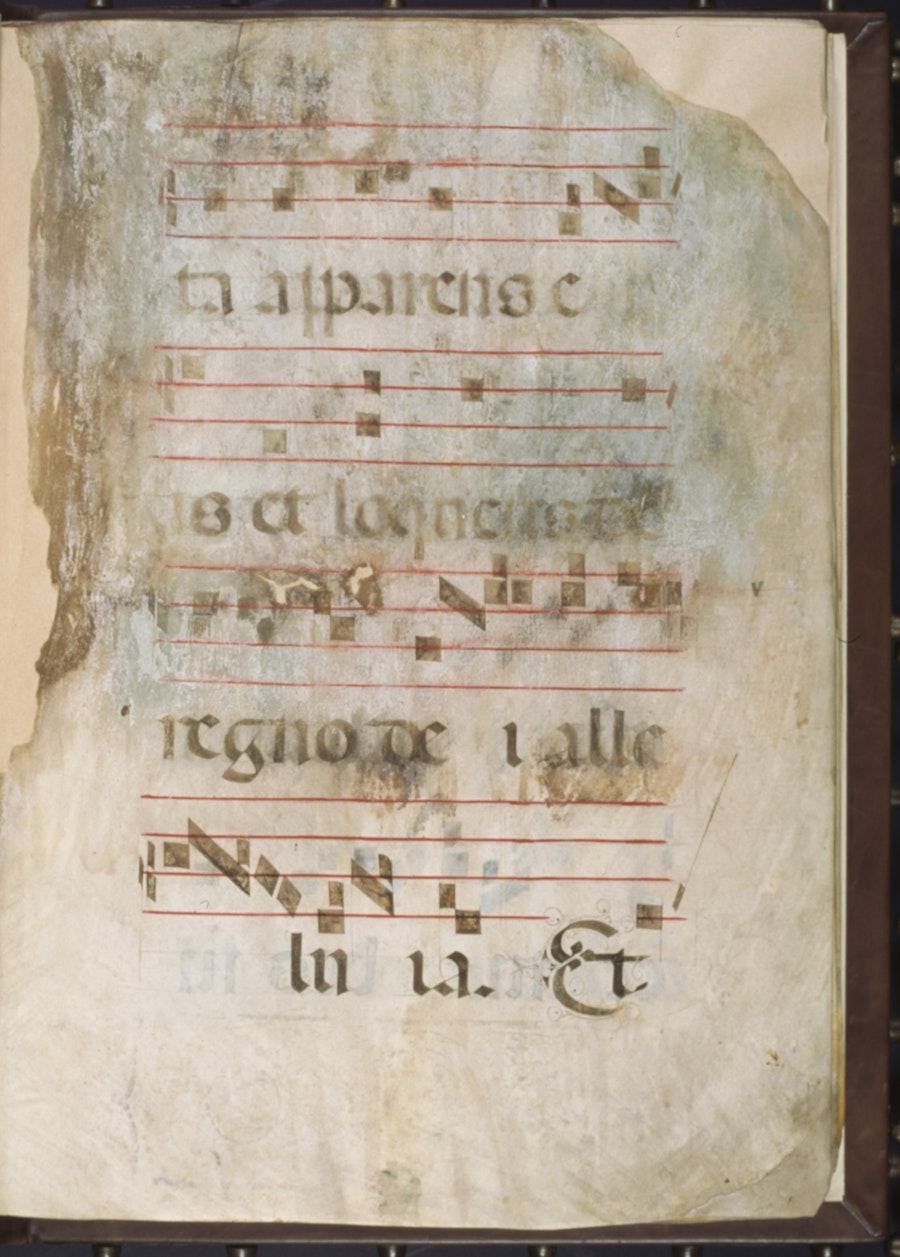 ta apparens e
is et loquens de
regno de i alle
lu ia. Et